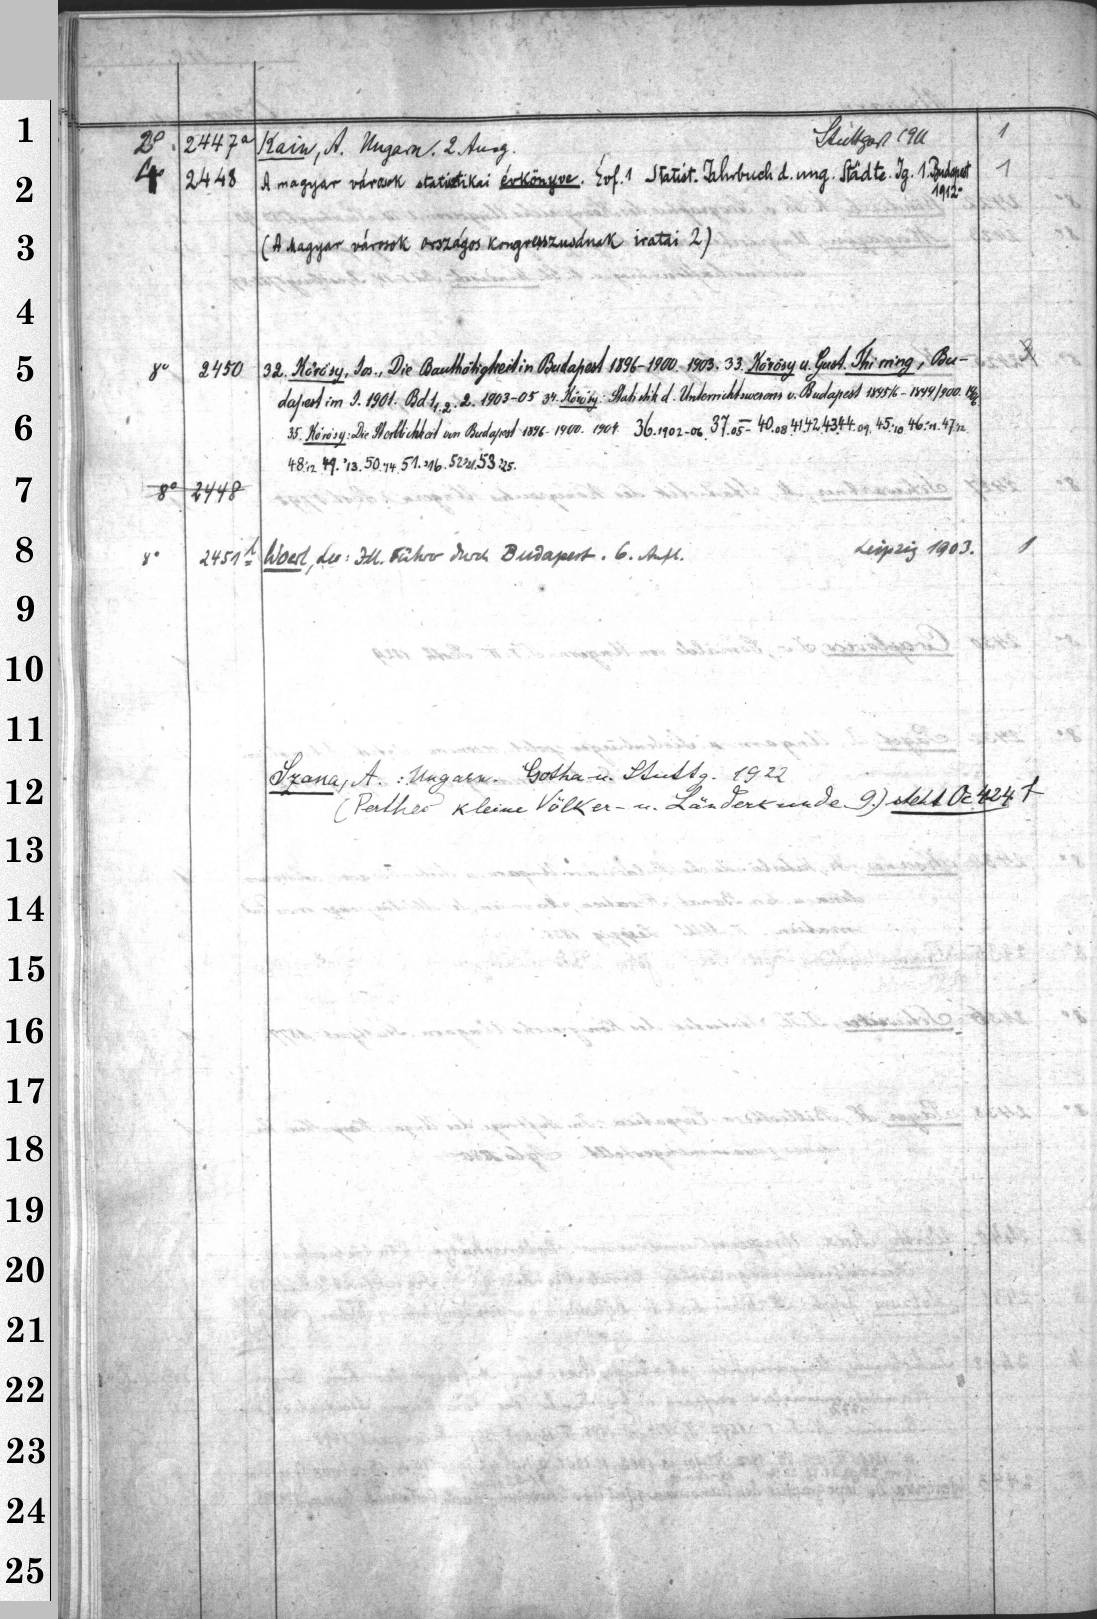 1 2°. 2447a Kain, A. Ungarn. 2. Ausg. Stuttgart 1911 1
2 4° 2448 A magyar városok statistikai évkönyve. Évf. 1 Statist. Jahrbuch d. ung. Städte. Jg. 1. Budapest 1912- 1
3 (A magyar városok országos kongresszusának iratai 2)
4
5 8° 2450 32. Körösy, Jos., Die Bauthätigkeit in Budapest 1896-1900. 1903. 33. Körösy u. Gust. Thirring, Bu-
dapest im J. 1901. Bd 1, 2. 2. 1903-05 34. Körösy: Statistik d. Unterrichtswesens v. Budapest 1895/6-1899/900.
6 35. Körösy: Die Sterblichkeit von Budapest 1896-1900. 1904. 36. 1902-06. 37. 05- 40. 08 41 42 43 44. 09. 45: 10 46: 11. 47: 12
48: 12 49. '13. 50. 14. 51. 16. 52 21. 53: 25.
7 8° 2448
8 8° 2451 h Woerl, Leo: Ill. Führer durch Budapest. 6. Aufl. Leipzig 1903. 1
9
10
11
12 Szana, A. : Ungarn. Gotha u. Stuttg. 1922
(Perthes kleine Völker- u. Länderkunde 9.) steht Oc 424 t
13
14
15
16
17
18
19
20
21
22
23
24
25